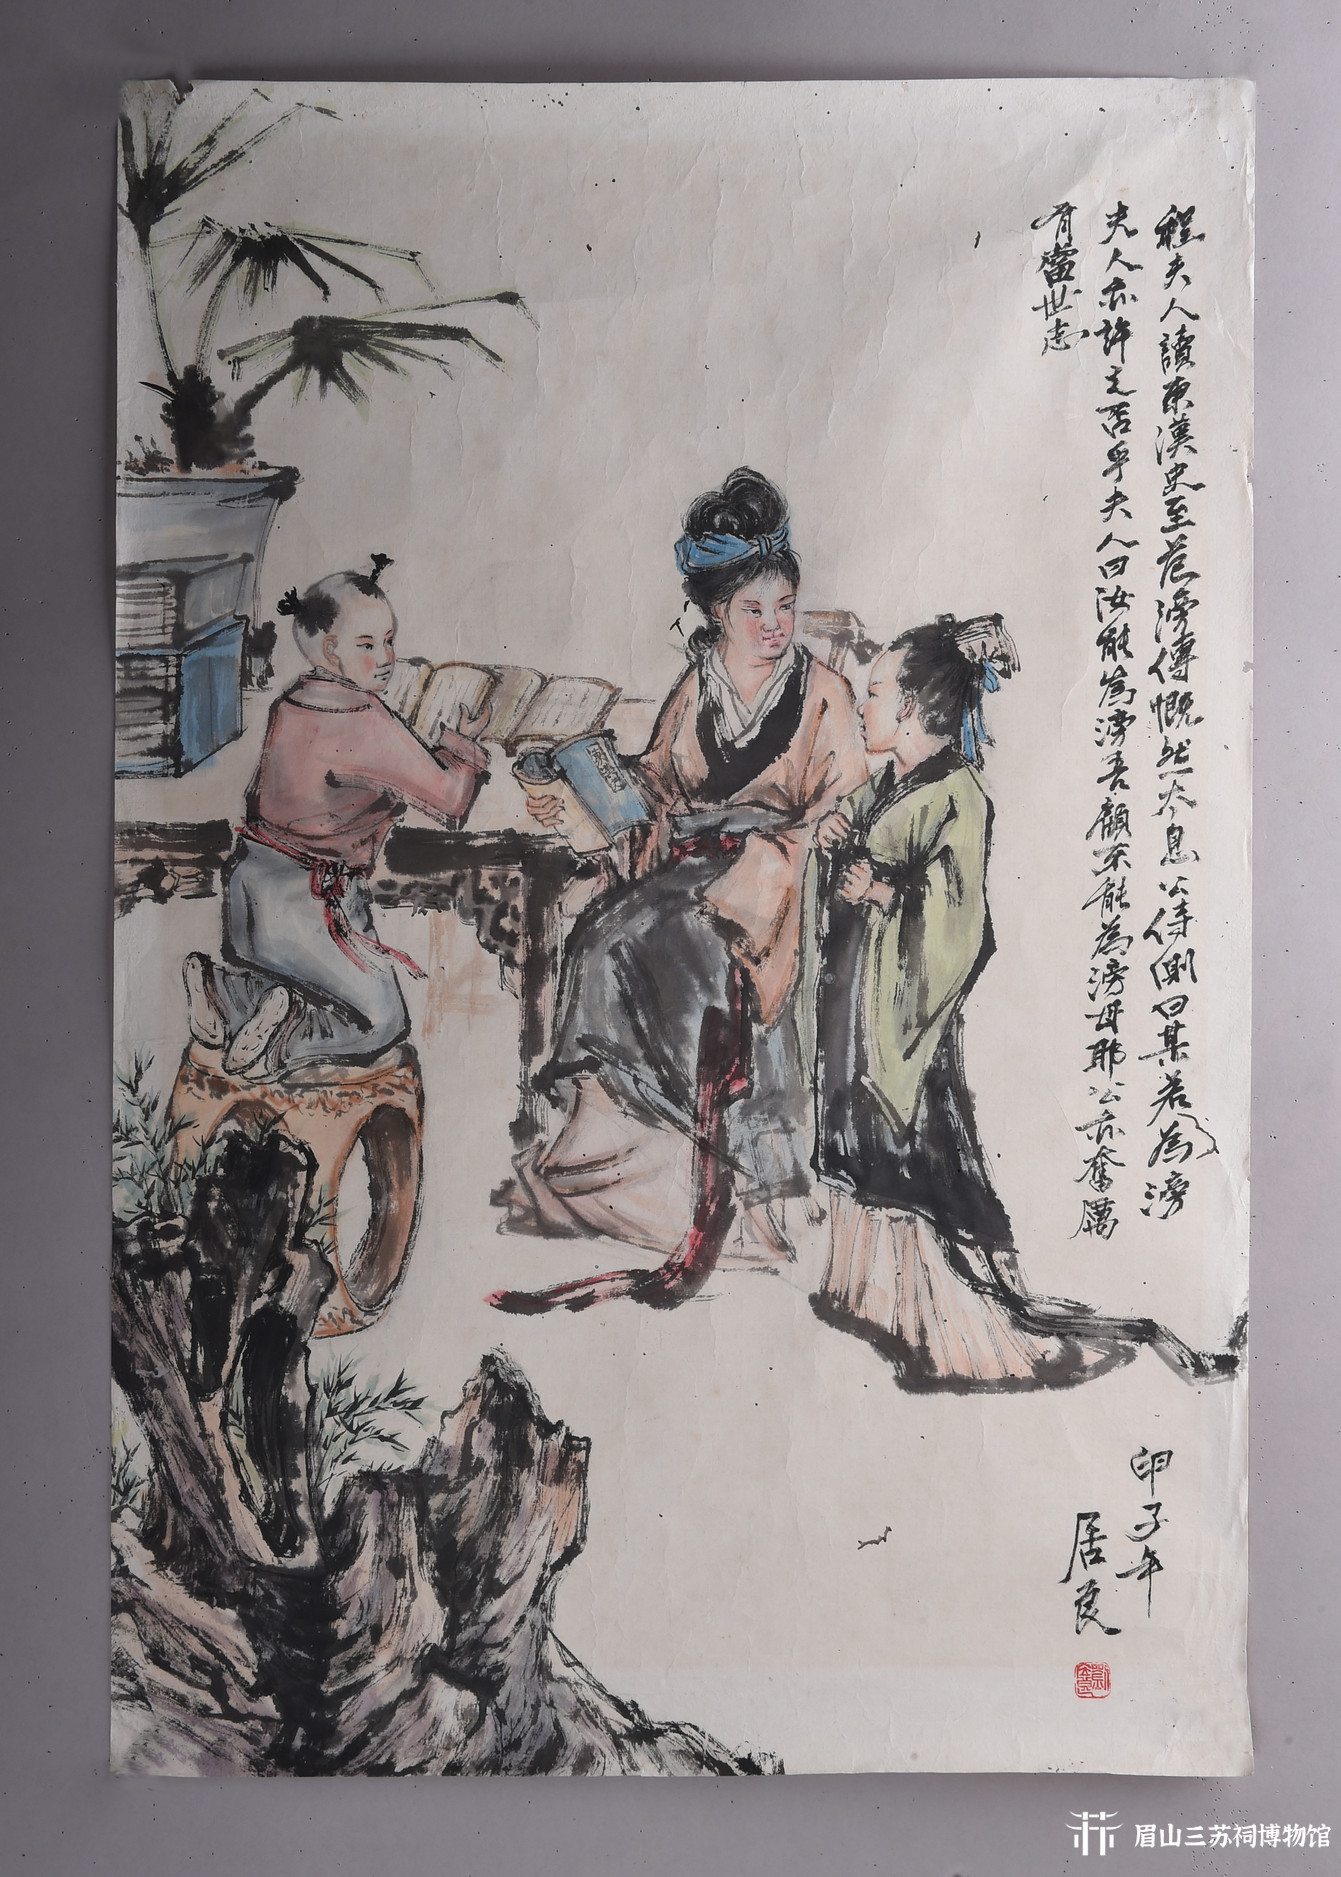 程夫人讀東漢史至范滂傳慨然太息公侍側曰某若為滂
夫人亦許之否乎夫人曰汝能為滂吾顧不能為滂母耶公亦奮厲
有當世志
甲子年
居良
眉山三苏祠博物馆